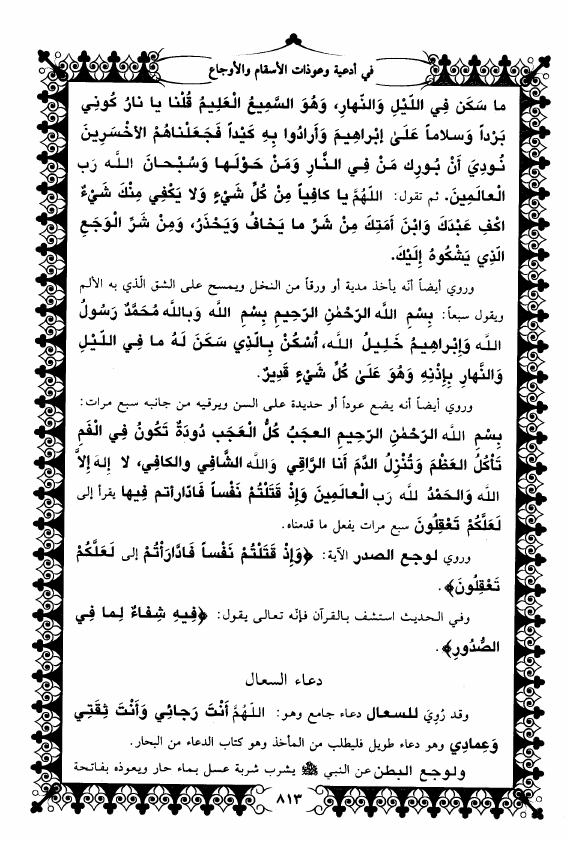 في أدعية وعوذات الأسقام والأوجاع
ما سَكَن فِي اللَّيْلِ وَالنَّهارِ، وَهُوَ السَّمِيعُ الْعَلِيمُ قُلْنا يا نارُ كُونِي
بَرْداً وَسلاماً عَلَىٰ إِبْراهِيمَ وَأَرادُوا بِهِ كَيْداً فَجَعَلْناهُمُ الأَخْسَرِينَ
نُودِيَ أَنْ بُورِكَ مَنْ فِي النَّارِ وَمَنْ حَوْلَها وَسُبْحانَ اللَّه رَب
الْعالَمِينَ. ثم تقول: اللهُمَّ يا كافِياً مِنْ كُلِّ شَيْءٍ وَلا يَكْفِي مِنْكَ شَيْءٌ
اكْفِ عَبْدَكَ وَابْنَ أَمَتِكَ مِنْ شَرِّ ما يَخافُ وَيَحْذَرُ، وَمِنْ شَرِّ الْوَجَعِ
الَّذِي يَشْكُوهُ إِلَيْكَ.
وروي أيضاً أنّه يأخذ مدية أو ورقاً من النخل ويمسح على الشق الّذي به الألم
ويقول سبعاً: بِسْمِ اللَّه الرَّحْمٰنِ الرَّحِيمِ بِسْمِ اللَّه وَبِاللَّه مُحَمَّدٌ رَسُولُ
اللَّه وَإِبْراهِيمُ خَلِيلُ اللَّه، أُسْكُنْ بِالَّذِي سَكَنَ لَهُ ما فِي اللَّيْلِ
وَالنَّهارِ بِإِذْنِهِ وَهُوَ عَلَىٰ كُلِّ شَيْءٍ قَدِيرٌ.
وروي أيضاً أنه يضع عوداً أو حديدة على السن ويرقيه من جانبه سبع مرات:
بِسْمِ اللَّه الرَّحْمٰنِ الرَّحِيمِ العجَبُ كُلُّ الْعَجَبِ دُودَةٌ تَكُونُ فِي الْفَمِ
تَأكُلُ العَظْمَ وَتُنْزِلُ الدَّمَ أنا الرَّاقِي وَاللَّه الشَّافِي والكافِي، لا إلهَ إلاَّ
اللَّه وَالحَمْدُ للَّه رَب الْعالَمِينَ وَإِذْ قَتَلْتُمْ نَفْساً فَادَّارأتم فِيها يقرأ إلى
لَعَلَّكُمْ تَعْقِلُونَ سبع مرات يفعل ما قدمناه.
وروي لوجع الصدر الآية: ﴿وَإِذْ قَتَلْتُمْ نَفْساً فَادَّارَأْتُمْ إلى لَعَلَّكُمْ
تَعْقِلُونَ﴾.
وفي الحديث استشف بالقرآن فإنّه تعالى يقول: ﴿فِيهِ شِفاءٌ لِما فِي
الصُّدُورِ﴾.
دعاء السعال
وقد رُوِيَ للسعال دعاء جامع وهو: اللهُمَّ أَنْتَ رَجائِي وَأَنْتَ ثِقَتِي
وَعِمادِي وهو دعاء طويل فليطلب من المأخذ وهو كتاب الدعاء من البحار.
ولوجع البطن عن النبي ﷺ يشرب شربة عسل بماء حار ويعوذه بفاتحة
٨١٣